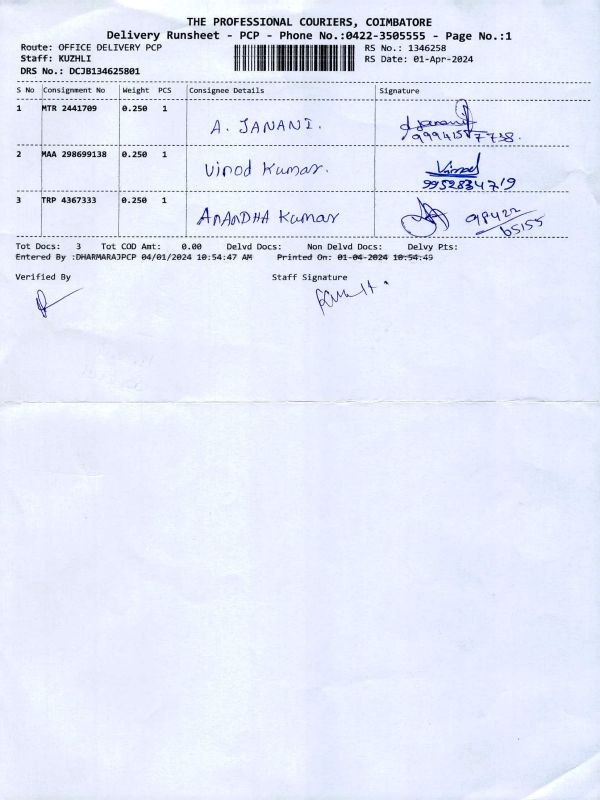 THE PROFESSIONAL COURIERS, COIMBATORE
Delivery Runsheet - PCP - Phone No.:0422-3505555 - Page No.:1
Route: OFFICE DELIVERY PCP RS No.: 1346258
Staff: KUZHLI RS Date: 01-Apr-2024
DRS No.: DCJB134625801
S No Consignment No Weight PCS Consignee Details Signature
1 MTR 2441709 0.250 1 A. JANANI. A Janani
7738.
2 MAA 298699138 0.250 1 Vinod Kumar. Vinod
9952834719
3 TRP 4367333 0.250 1 ANANDHA Kumar 98422
65155
Tot Docs: 3 Tot COD Amt: 0.00 Delvd Docs: Non Delvd Docs: Delvy Pts:
Entered By :DHARMARAJPCP 04/01/2024 10:54:47 AM Printed On: 01-04-2024 10:54:49
Verified By Staff Signature